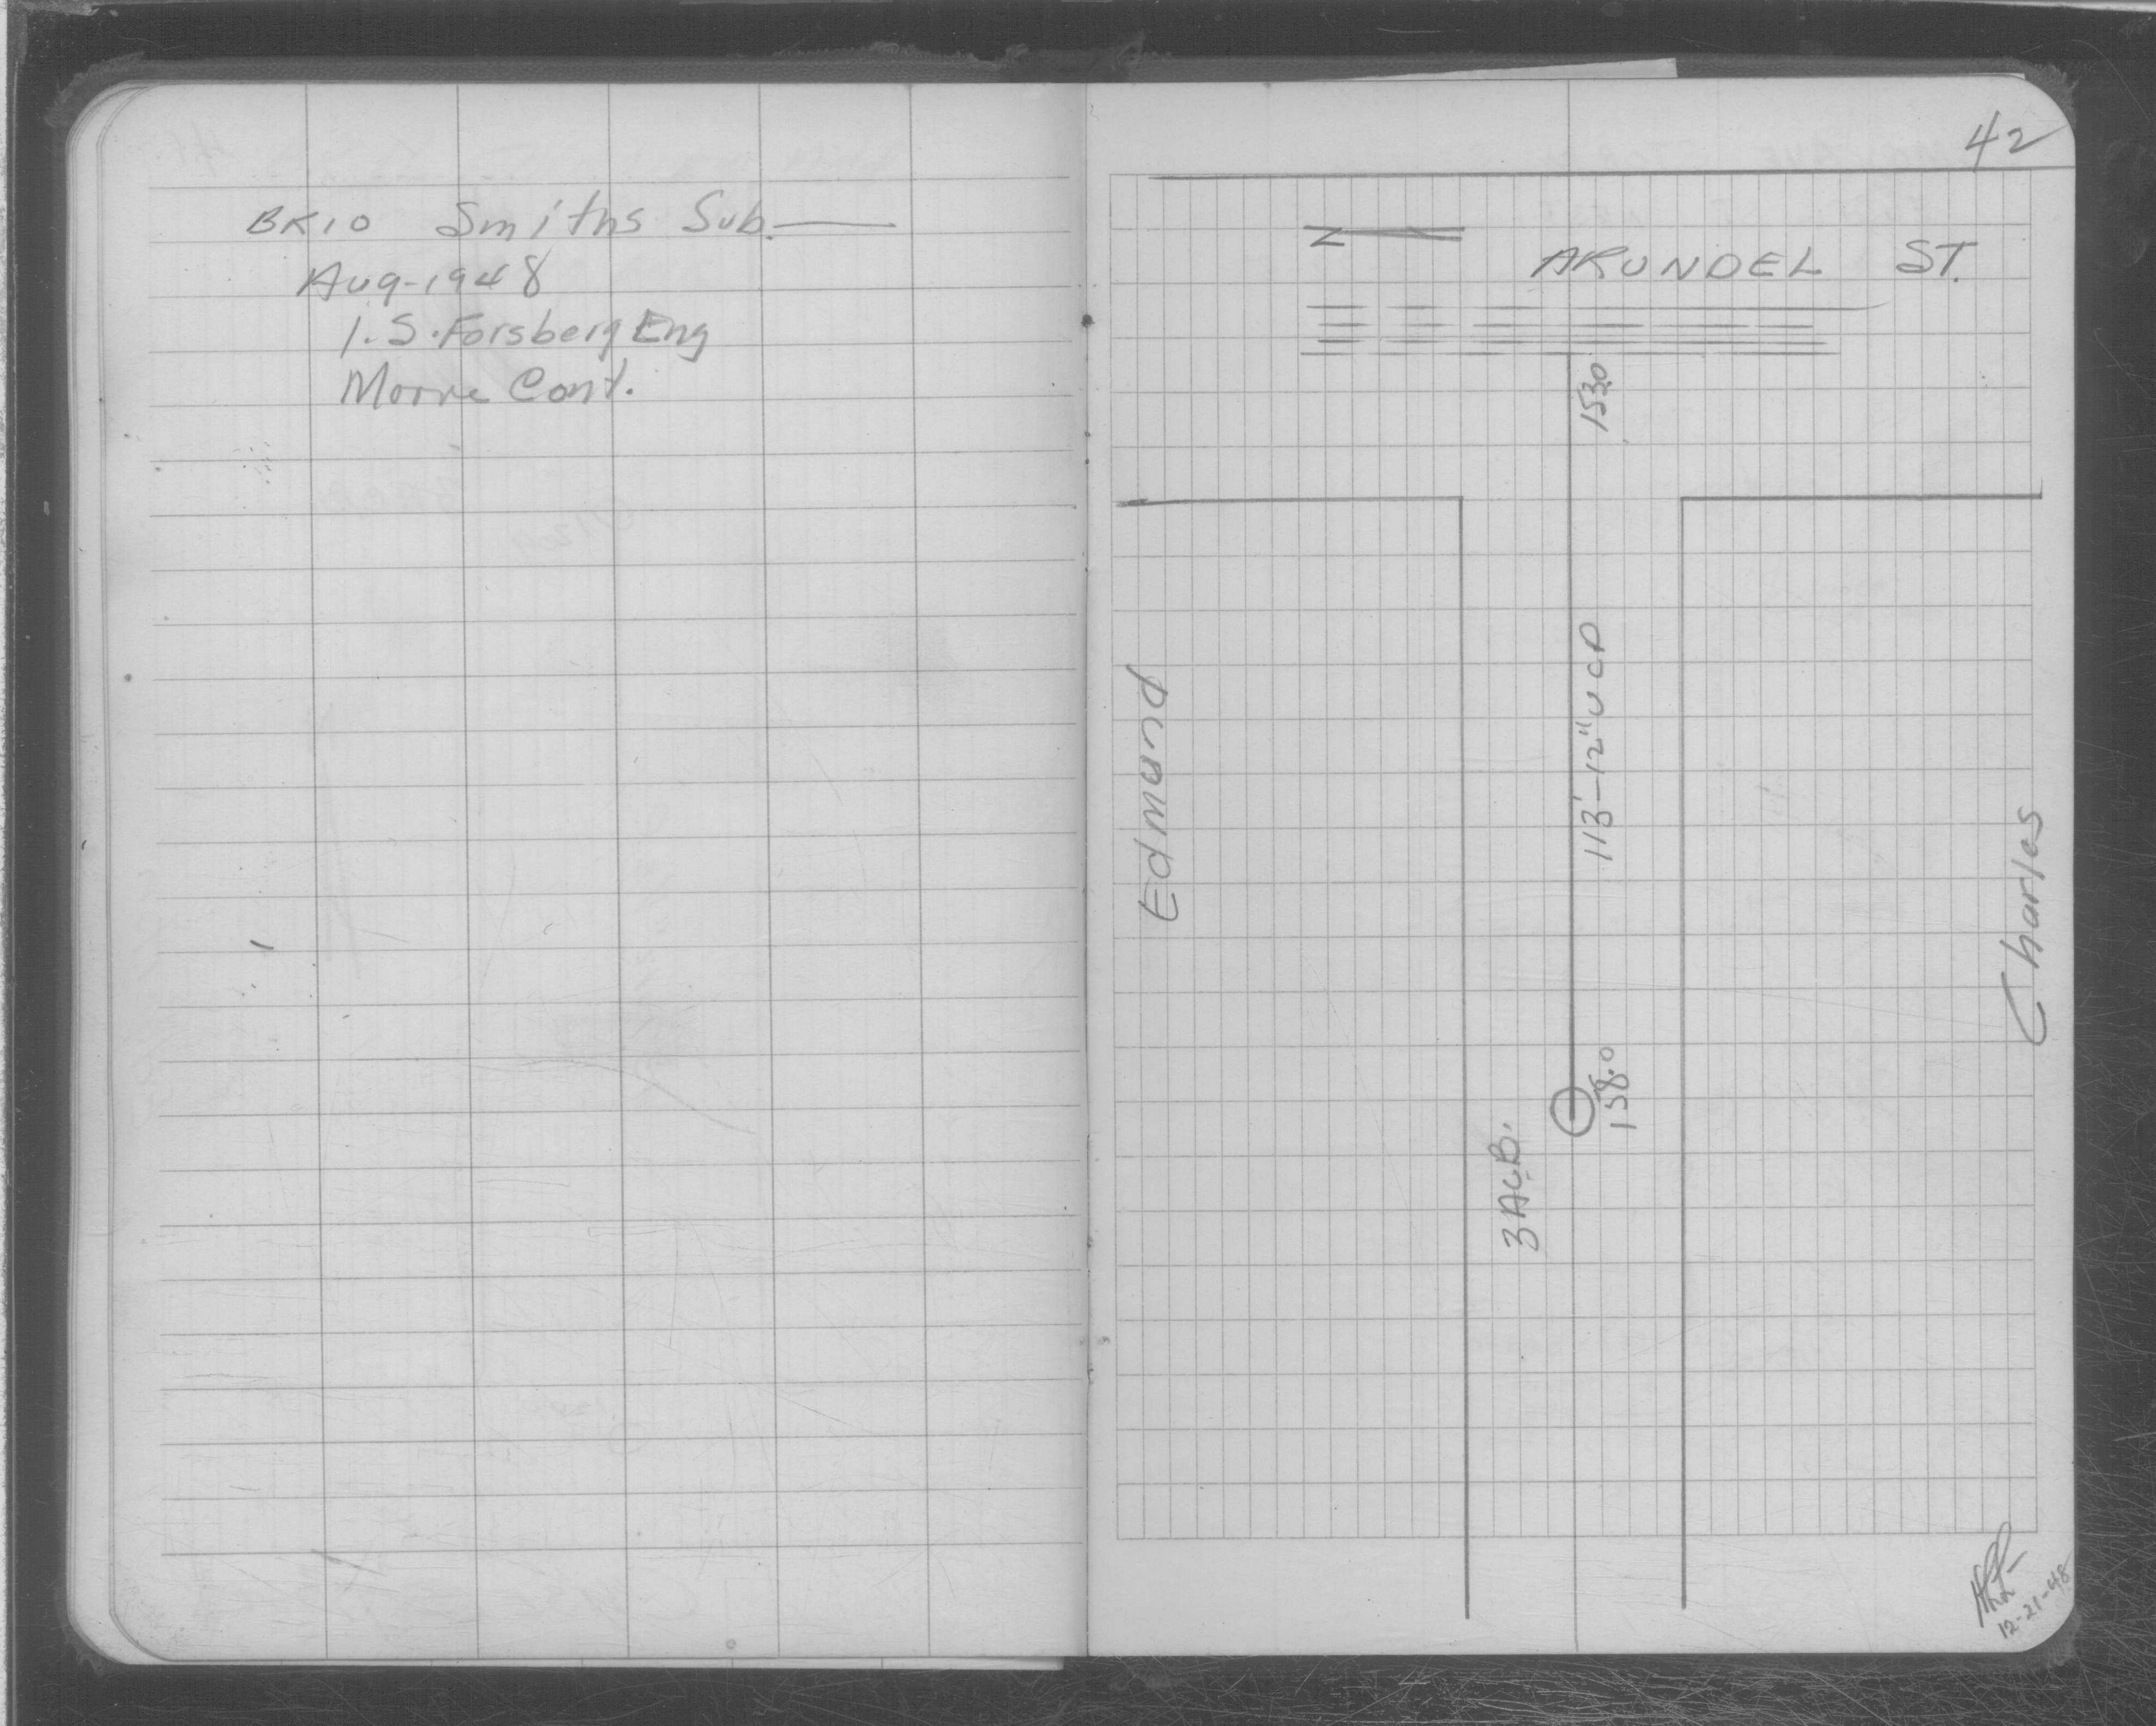 BK10 Smiths Sub.
Aug-1948
I.S. Forsberg Eng
Moore Cont.
42
ARUNDEL ST.
153.0
113'-12" VCP
Edmund
Charles
158.0
12-21-48